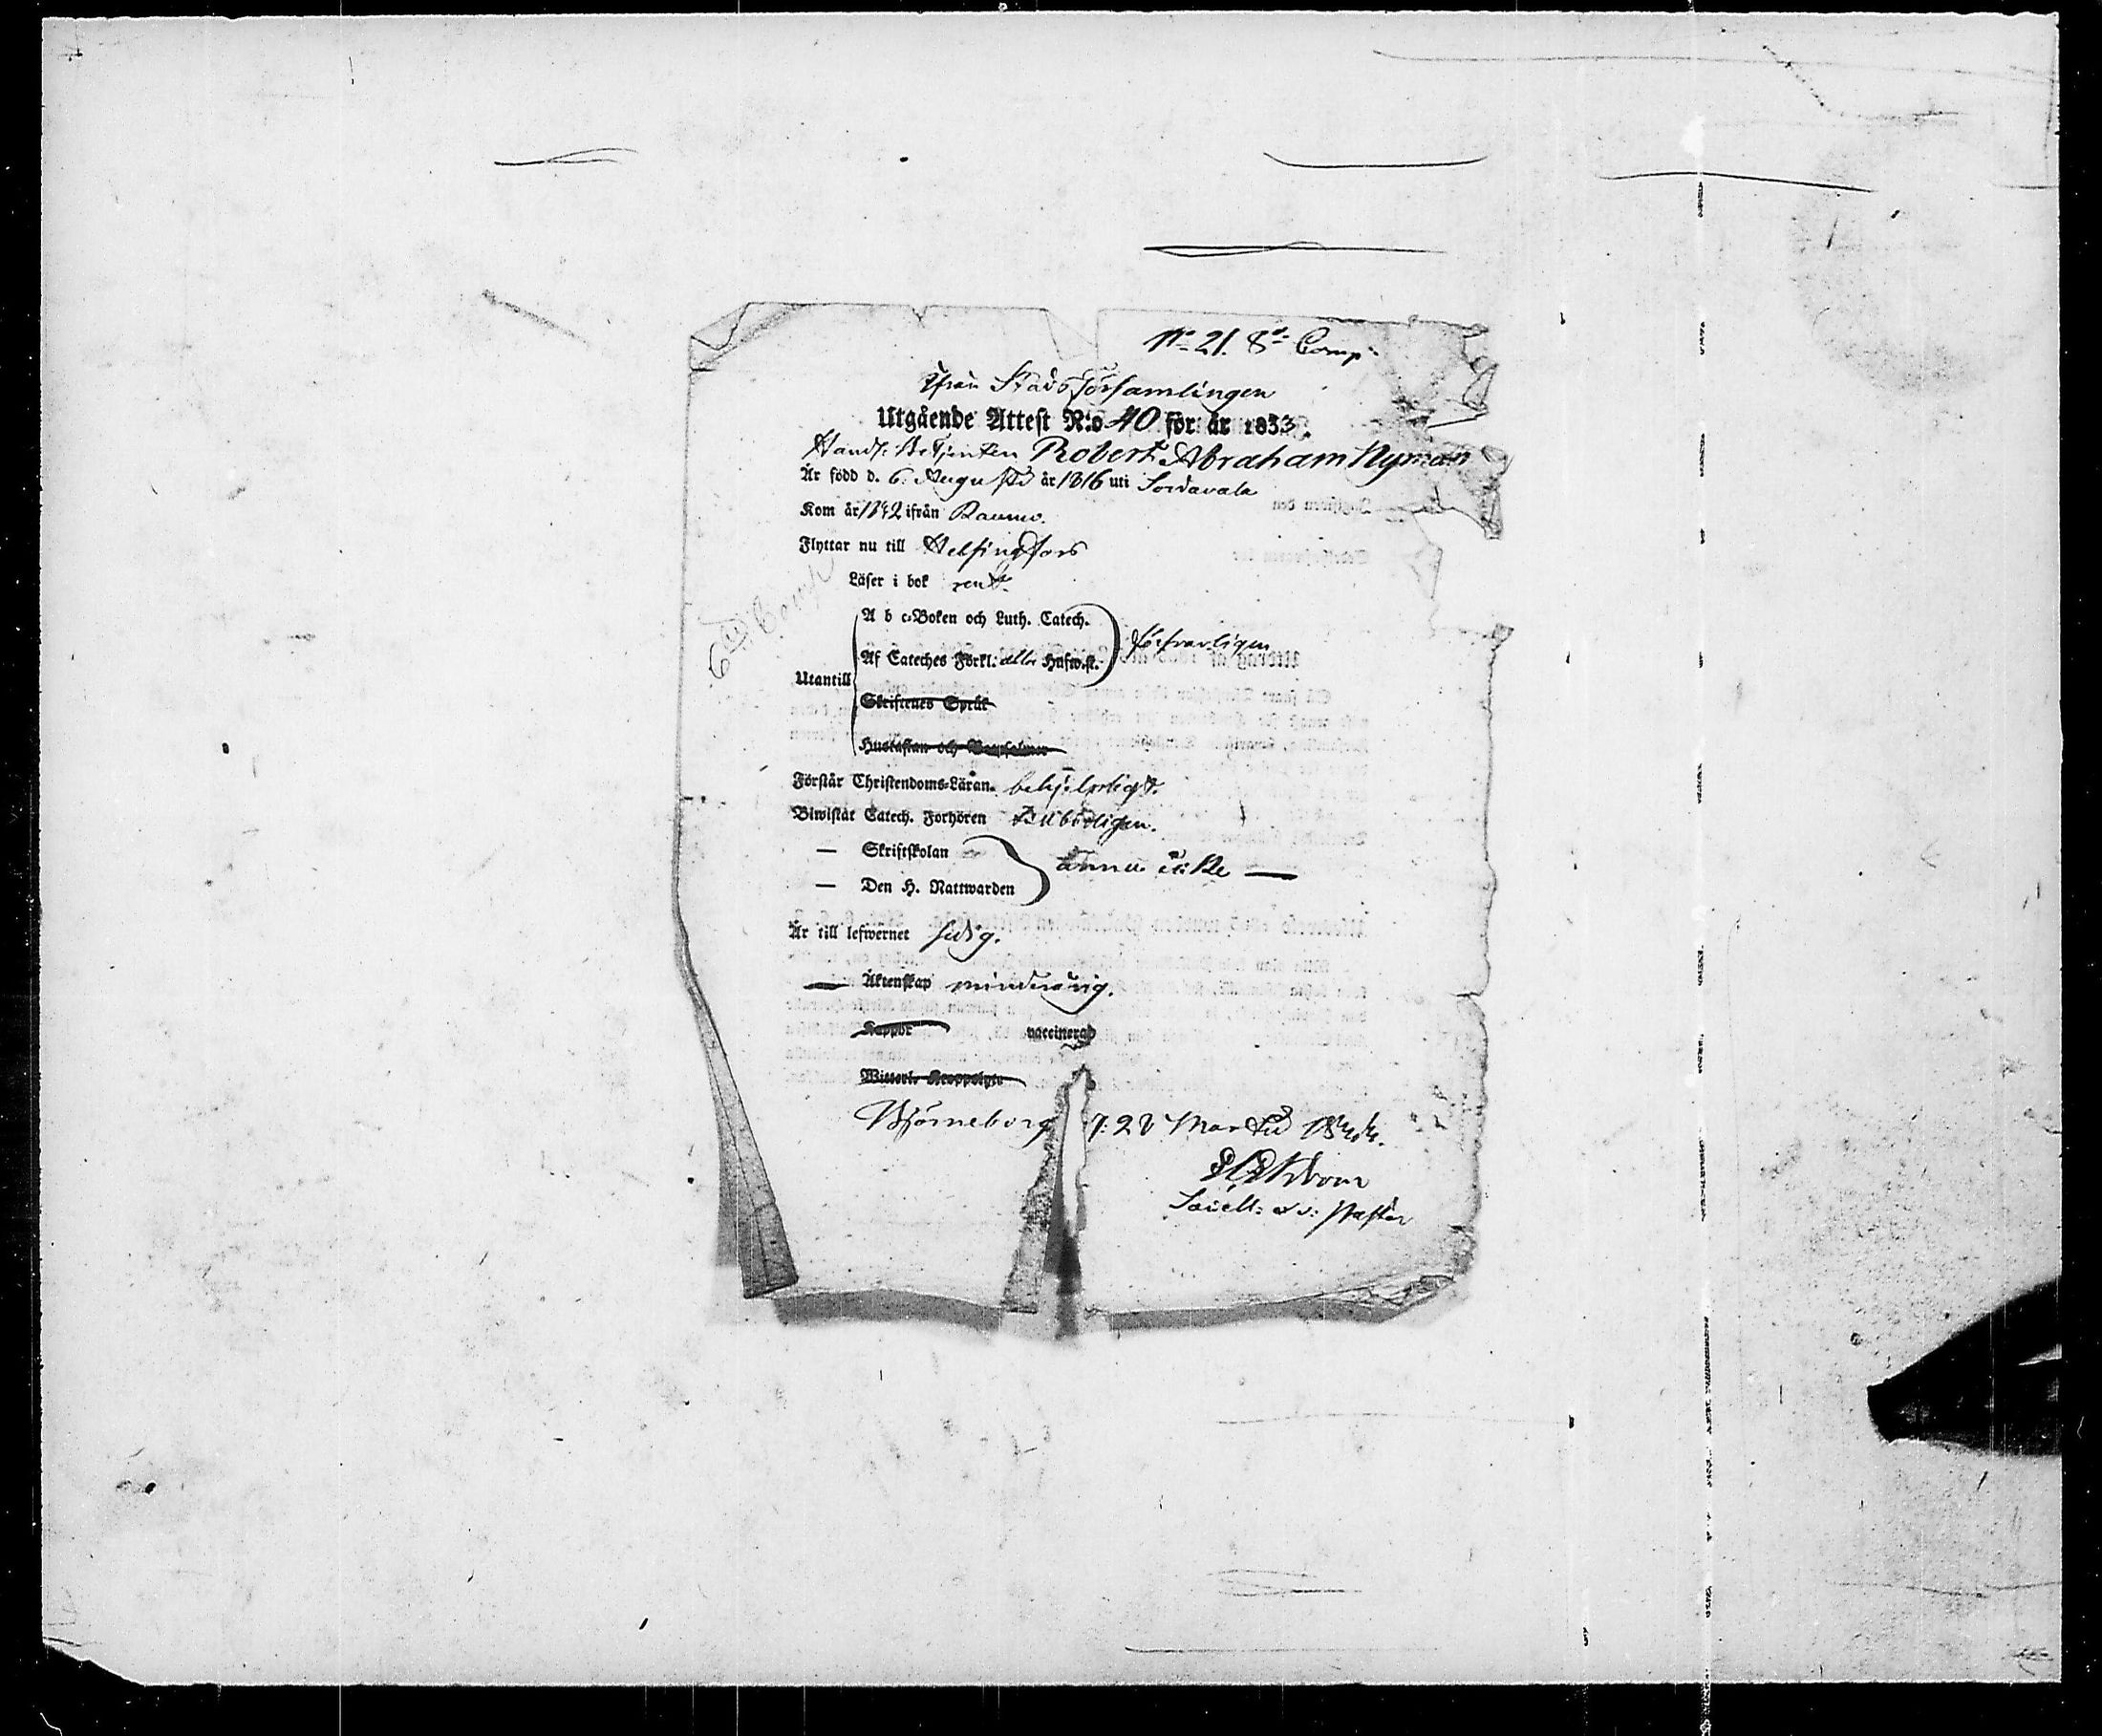 No 21. 8de Comp:
Ifrån Stads församlingen
Utgående Attest N:o 40 för år 1833.
Handl: Betjenten Robert Abraham Nyman
Är född d. 6. Augusti år 1816 uti Sordavala
Kom år 1842 ifrån Raumo.
Flyttar nu till Helsingfors
Läser i bok rent.
6te Comp
A b c-Boken och Luth. Catech.
Af Cateches Förkl: alla Hufw.st. försvarligen
Utantill
Skriftenes Språk
Hustaflan och
Förstår Christendoms-Läran. behjelpligt.
Biwistat Catech. Förhören tillbörligen.
— Skriftskolan
— Den H. Nattwarden ännu icke —
Är till lefwernet sedig.
— Äktenskap minderårig.
Koppor vaccinerad
Witterl. Kroppslyte
Björneborg d: 28 Martii 1844.
Sacell: v: Pastor